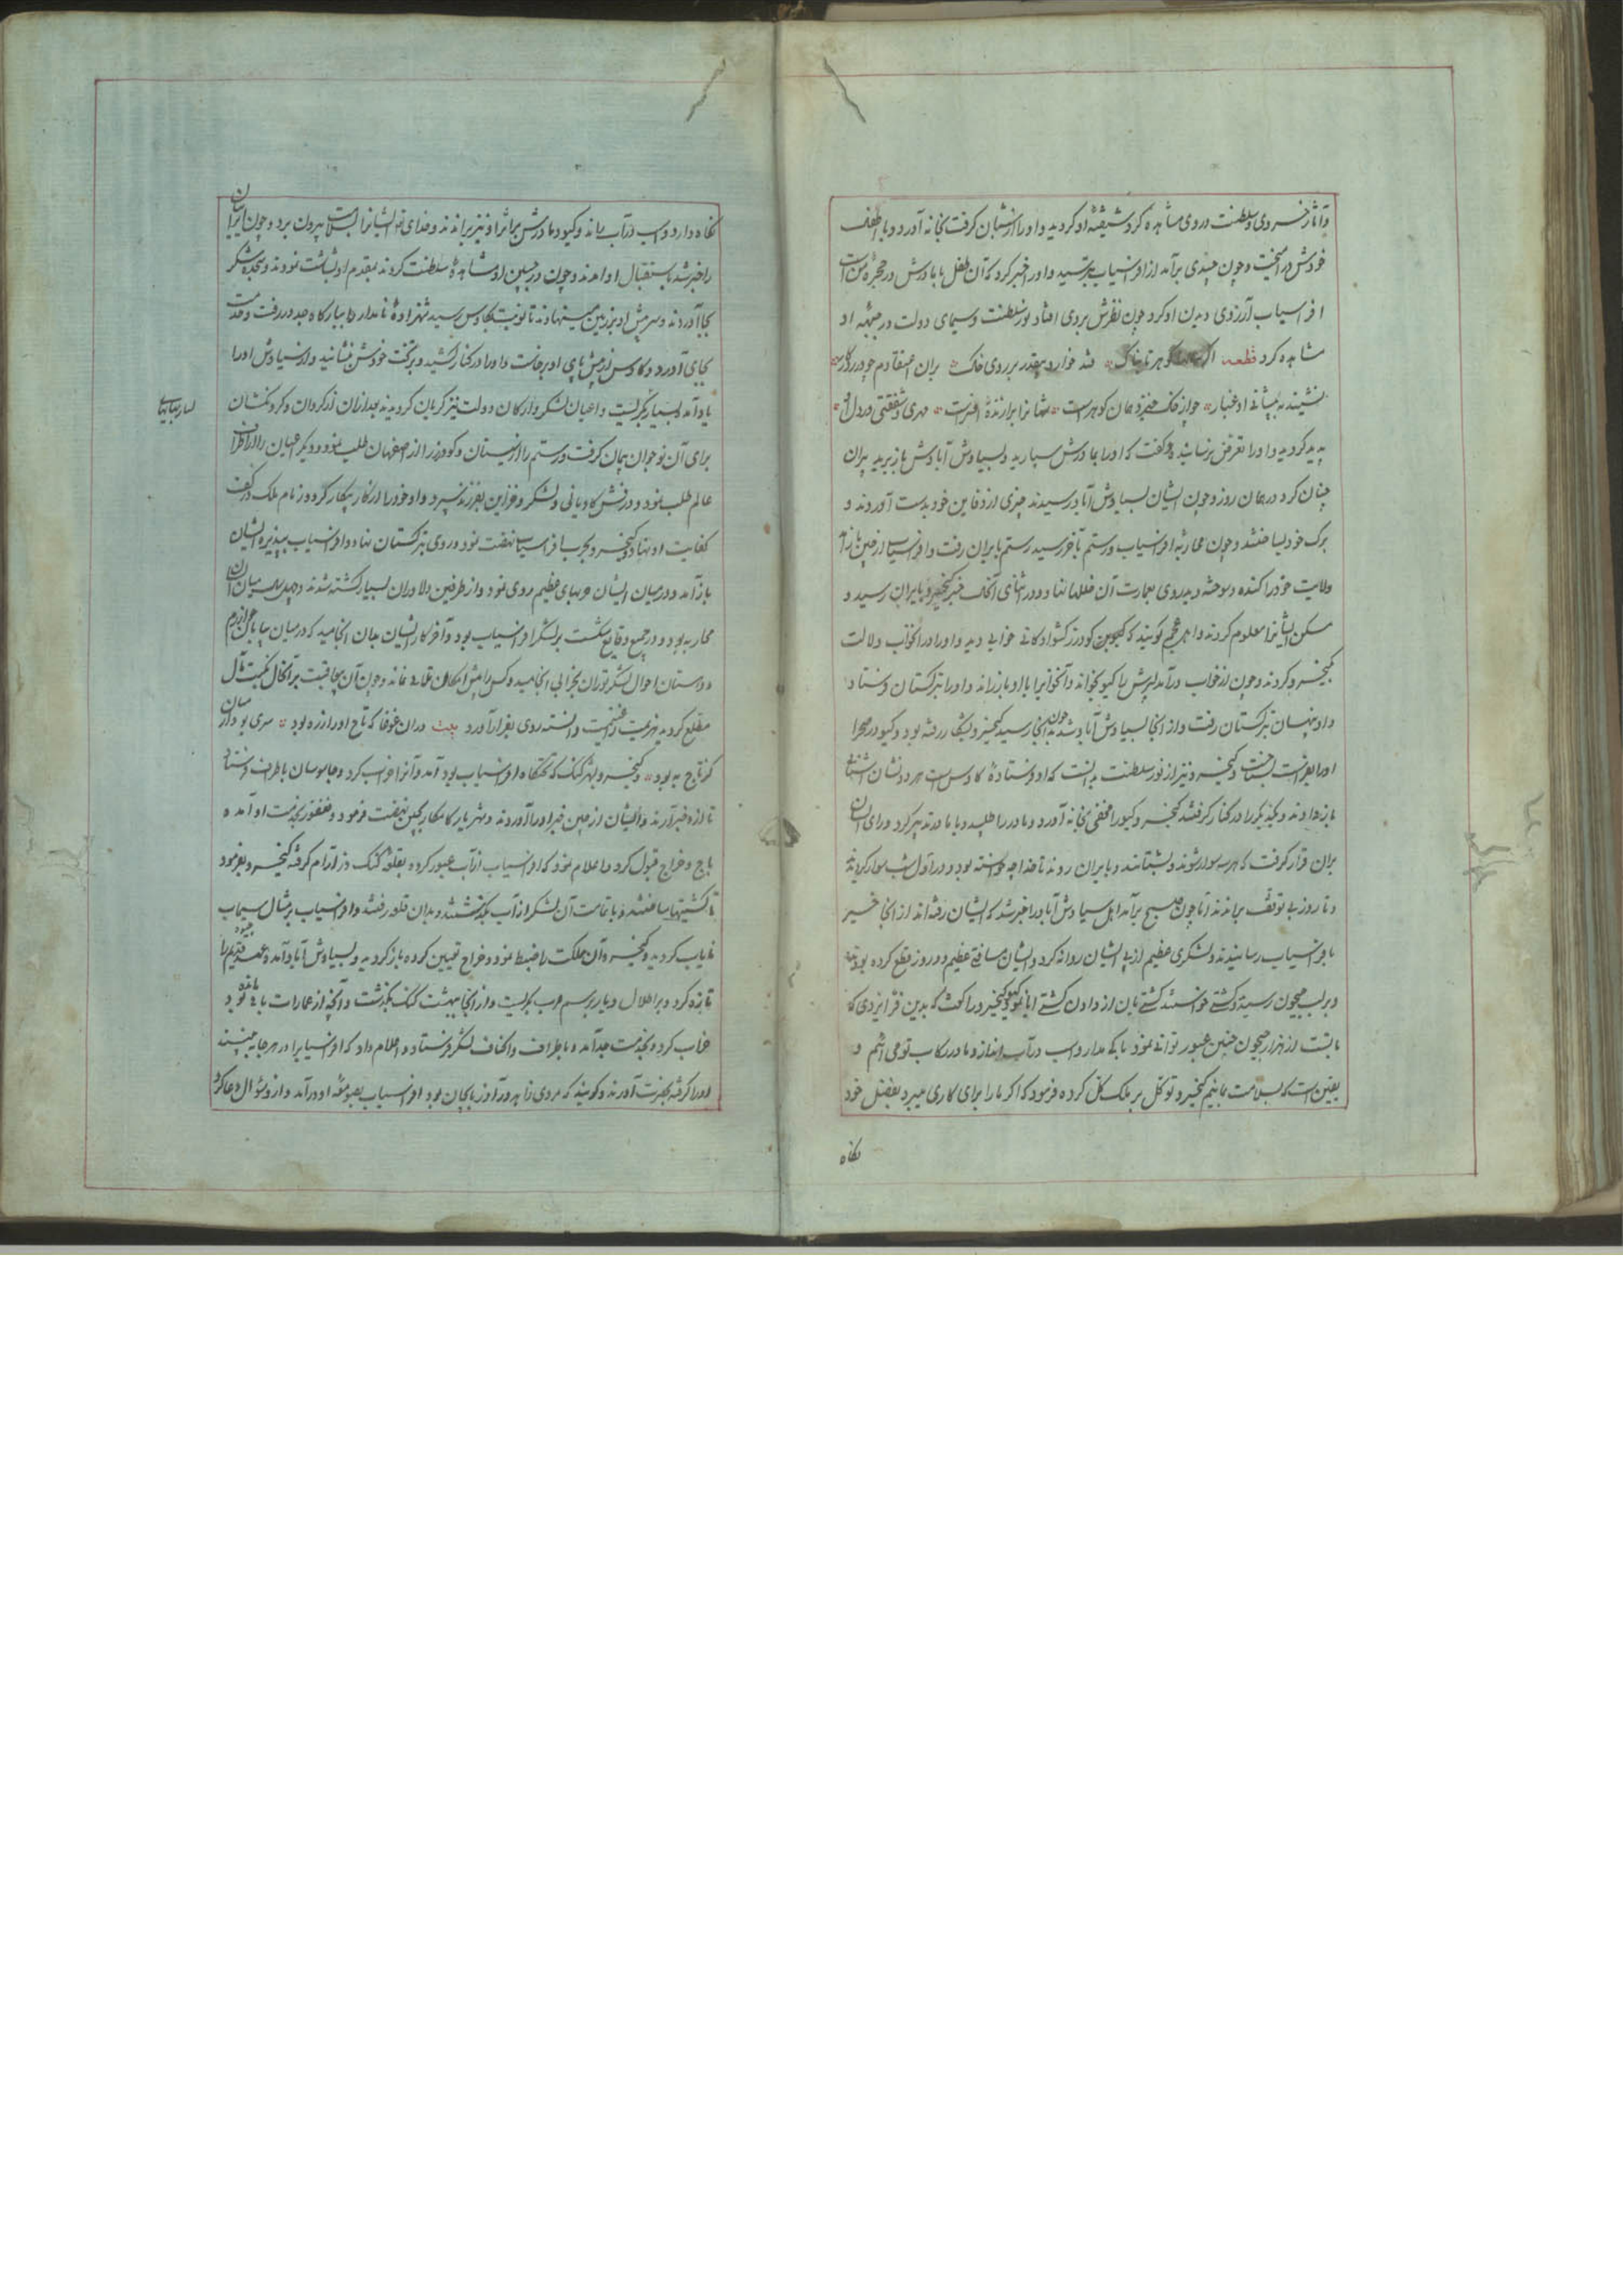 و آثار خسروی و سلطنت در وی مشاهده کرد شیفتهٔ او کردید و او را از شبان کرفت بخانه آورد و با طفل
خودش در آمیخت و چون چندی برآمد از افراسیاب بترسید و او را خبر کرد که آن طفل با مادرش در حجرهٔ من است
افراسیاب آرزوی دیدن او کرد چون نظرش بر وی افتاد نور سلطنت و سیمای دولت در جبههٔ او
مشاهده کرد قطعه اگر کوهر تابناک فتد خوار و بیقدر بر روی خاک بران
نشیند به پیشانی او غبار چو از خاک خیزد همان کوهر است شهانرا برازندهٔ افسر است مهری و شفقتی در دل او
پدید کردید و او را تعرض نرسانید و گفت که او را بمادرش سپارید و بسیاوش آباد وش باز برید پیران
چنان کرد در همان روز و چون ایشان بسیاوش آباد رسیدند چیزی از دفاین خود بدست آوردند و
برک خود بساختند و چون محاربهٔ افراسیاب و رستم بآخر رسید رستم بایران رفت و افراسیاب از چین باز آمد
ولایت خود را کنده و سوخته دید روی بعمارت آن خللها نهاد و در اثنای آنحال خبر کیخسرو بایران رسید و
مسکن ایشانرا معلوم کردند و اهل عجم کویند که کیو بن کودرز کشواد کانی خوابی دید و او را در آنخواب دلالت
کیخسرو کردند و چون از خواب درآمد پسرش را کیو بخواند و آنخوابرا با او باز راند و او را بترکستان فرستاد
و او پنهان بترکستان رفت و از آنجا بسیاوش آباد شد چون بدانجا رسید کیخسرو بشکار رفته بود و کیو در صحرا
او را بفراست بشناخت و کیخسرو نیز از نور سلطنت بدانست که او فرستادهٔ کاوس است هر دو نشان آشنائی
باز دادند و یکدیکر را در کنار کرفتند کیخسرو کیو را مخفی بخانه آورد و مادر را طلبید و با مادر تدبیر کرد و رای ایشان
بران قرار کرفت که هر سه سوار شوند و بشتابند و بایران روند تا خدا چه خواسته بود و در اول شب سوار کردیدند
و تا روز بی توقف براندند اما چون صبح برآمد اهل سیاوش آباد را خبر شد که ایشان رفته‌اند از آنجا خبر
بافراسیاب رسانیدند و لشکری عظیم از پی ایشان روانه کرد و ایشان مسافتی عظیم در دو روز قطع کرده بودند
و بر لب جیحون رسیدند و کشتی خواستند کشتی بان از دادن کشتی ابا نمود کیو کیخسرو را گفت که بدین فر ایزدی که
با تست از هزار جیحون چنین عبور توانی نمود باک مدار و اسب در آب انداز و مادر در رکاب تو می آئیم و
یقین است که بسلامت بمانیم کیخسرو توکل بر ملک کل کرده فرمود که اگر ما را برای کاری میبرد بفضل خود
نکاه
نکاه دارد و اسب در آب راند و کیو و مادرش بر اثر او نیز براندند و خدای تعالی ایشانرا بسلامت بیرون برد و چون ایرانیان
را خبر شد باستقبال او آمدند و چون در جبین او مشاهدهٔ سلطنت کردند بمقدم او بشاشت نمودند و سجدهٔ شکر
بجا آوردند و سر پیش او بر زمین مینهادند تا نوبت بکاوس رسید شهزادهٔ نامدار را ببارکاه جد در رفت و خدمت
بجای آورد و کاوس از پیش پای او برخاست و او را در کنار کشید و بر تخت خودش بنشانید و از سیاوش او را
یاد آمد بسیار بکریست و اعیان لشکر و ارکان دولت نیز کریان کردیدند بعد از ان از کردان و کردنکشان
برای آن نوجوان پیمان کرفت و رستم را از سیستان و کودرز را از اصفهان طلب نمود و دیکر اعیان را از اطراف
عالم طلب نمود و درفش کاویانی و لشکر و خزاین بفرزند سپرد و او خود را از کار بیکار کرد و زمام ملک در کف
کفایت او نهاد و کیخسرو بحرب افراسیاب نهضت نمود و روی بترکستان نهاد و افراسیاب پذیره ایشان
باز آمد و در میان ایشان حربهای عظیم روی نمود و از طرفین دلاوران بسیار کشته شدند و چهل سال میان ایشان
محاربه بود و در جمیع وقایع شکست بر لشکر افراسیاب بود و آخر کار ایشان بدان انجامید که در میان بیابان خوارزم
و دستان احوال لشکر توران بخرابی انجامید و کس را پیش امکان نماند و چون آن بدعاقبت برآنحال نکبت مآل
مطلع کردید هزیمت را غنیمت دانسته روی بفرار آورد بیت دران غوغا که تاج او را زره بود سری بودن از میان
کز تاج به بود و کیخسرو بشهر کنک که تختکاه افراسیاب بود آمد و آنرا خراب کرد و جاسوسان باطراف فرستاد
تا ازو خبر آرند و ایشان از چین خبر او را آوردند و شهریار کامکار بچین نهضت فرمود و فغفور بخدمت او آمده
باج و خراج قبول کرد و اعلام نمود که افراسیاب از آب عبور کرده بقلعهٔ کنک دز آرام کرفته کیخسرو بفرمود
تا کشتیها ساختند و با تمامت آن لشکر از آب بکذشتند و بدان قلعه رفتند و افراسیاب بر مثال سیماب
نایاب کردید و کیخسرو آن مملکت را ضبط نمود و خراج تعیین کرده باز کردید و بسیاوش آباد آمد و عهد قدیم را
تازه کرد و بر اطلال و دیار برسم عرب بکریست و از آنجا ببهشت کنک بکذشت و آنچه از عمارات باقی مانده بود
خراب کرد و بخدمت جد آمد و باطراف و اکناف لشکر فرستاد و اعلام داد که افراسیابرا در هر جا به بینند
او را کرفته بحضرت آورند و کویند که مردی زاهد در آذربایجان بود افراسیاب بصومعهٔ او درآمد و از و سؤال دعا کرد